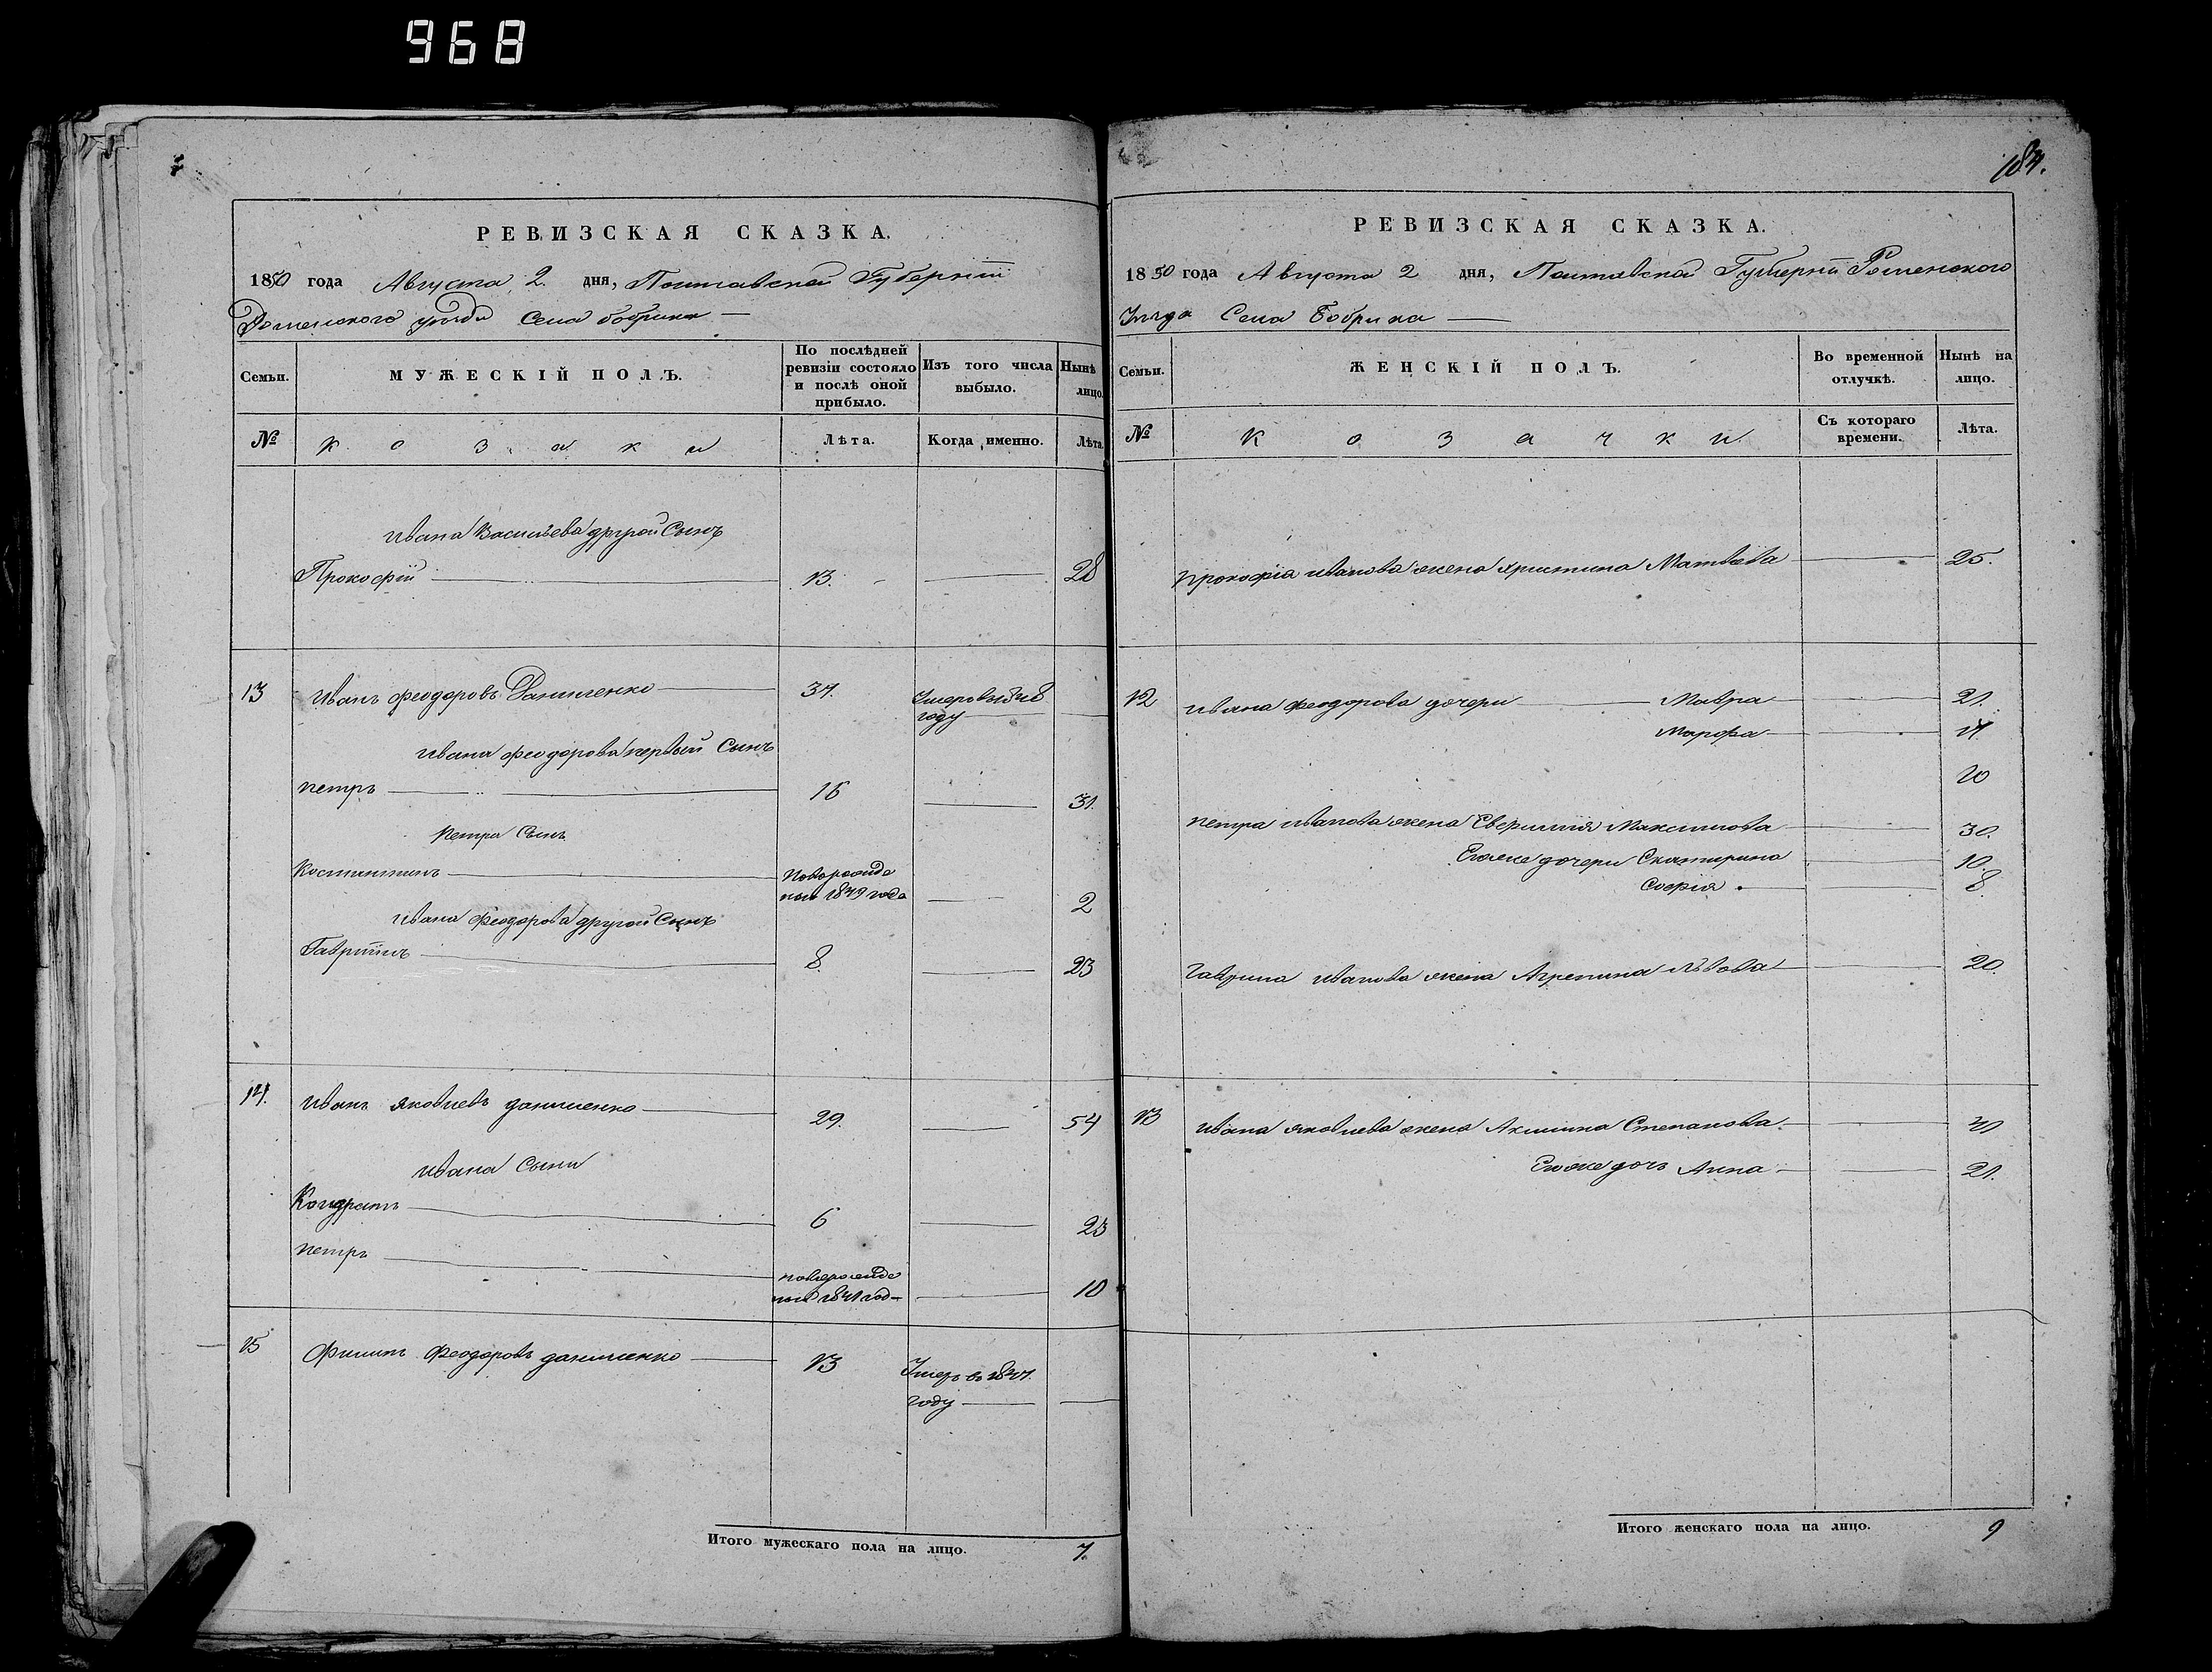 968
РЕВИЗСКАЯ СКАЗКА.
1850 года Августа 2. дня, Полтавской Губерніи
Роменского уѣзда Села бобрика
Семьи.
МУЖЕСКІЙ ПОЛЪ.
По послѣдней ревизіи состояло и послѣ оной прибыло.
Изъ того числа выбыло.
Нынѣ лицо.
№
Козаки
Лѣта.
Когда именно.
Лѣта.
Ивана Васильева другой Сынъ
Прокофій 13. 28
13 Иванъ Феодоровъ Данченко 37. Умеръ в 1848
году
Ивана Феодорова первый Сынъ
петръ 16 31.
Петра Сынъ
Костантинъ Новорожде
ный 1849 года 2
Ивана Феодорова другой Сынъ
Гавріилъ 8. 23
14. Иванъ Яковлевъ 29. 54
Ивана Сыни
Кондратъ 6 23
петръ новорожде
ный 1841 год 10
15 Филипъ Феодоровъ 13 Умеръ в 1847.
году
Итого мужескаго пола на лицо. 7.
184.
РЕВИЗСКАЯ СКАЗКА.
1850 года Августа 2 дня, Полтавской Губерніи Роменского
Уѣзда Села Бобрика
Семьи.
ЖЕНСКІЙ ПОЛЪ.
Во временной отлучкѣ.
Нынѣ на лицо.
№
Козачки
Съ котораго времени.
Лѣта.
Прокофія Иванова жена Христина Матвѣева 25.
12 Ивана Феодорова дочери Мавра 21.
Марфа
Петра Иванова жена Максимова 30.
Егоже дочери Екатирина 10.
Софія 8.
Гаврила Иванова жена Агрепина Львова 20.
13 Ивана Яковлева жена Акилина Степанова
Егоже дочь Анна 21.
Итого женскаго пола на лицо. 9